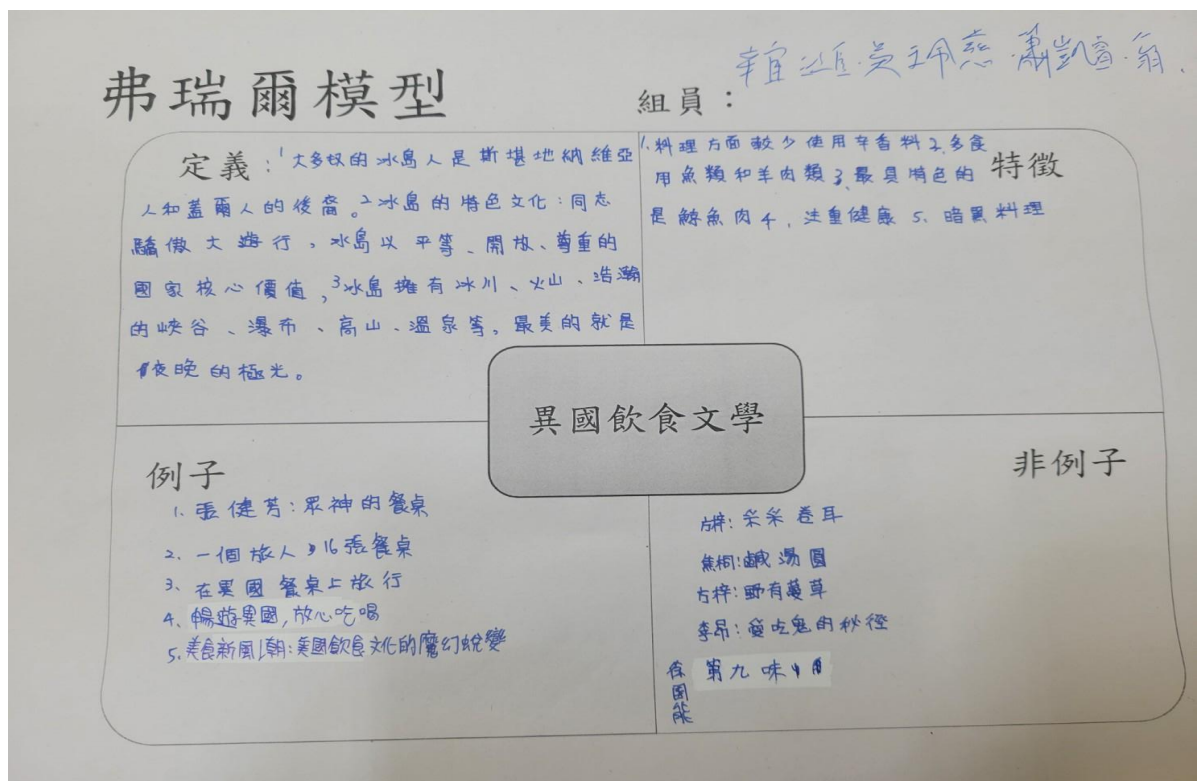 弗瑞爾模型
組員：
黃珮慈、蕭凱 翁、
定義：1大多奴的冰島人是斯堪地納維亞
人和蓋爾人的後裔。2冰島的特色文化：同志
驕傲大遊行，冰島以平等、開放、尊重的
國家核心價值，3冰島擁有冰川、火山、浩瀚
的峽谷、瀑布、高山、溫泉等，最美的就是
夜晚的極光。
特徵
1.料理方面較少使用辛香料2.多食
用魚類和羊肉類3.最具特色的
是鯨魚肉4.注重健康5.暗黑料理
異國飲食文學
例子
1.張健芳：眾神的餐桌
2.一個旅人，16張餐桌
3.在異國餐桌上旅行
4.暢遊異國，放心吃喝
5.美食新風潮：美國飲食文化的魔幻蛻變
非例子
方梓：采采卷耳
焦桐：鹹湯圓
方梓：野有蔓草
李昂：愛吃鬼的秘徑
徐國能 第九味